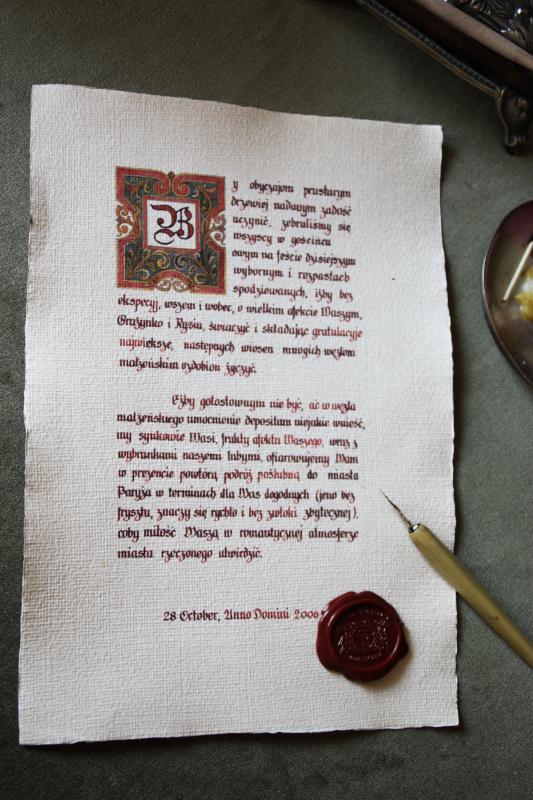 By obyczajom prastarym
drzewiej nadanym zadość
uczynić, zebraliśmy się
wszyscy w gościńcu
owym na feście dzisiejszym
wybornym i rozpastach
spodziewanych, iżby bez
ekspecyj, wszem i wobec, o wielkim afekcie Waszym,
Grażynko i Rysiu, świaczyć i składając gratulacyje
największe, następnych wiosen mnogich węzłem
małżeńskim ozdobion życzyć.
Eżby gołosłownym nie być, ać w węzła
małżeńskiego umocnienie depositum niejakie wnieść,
my synkowie Wasi, frukty afektu Waszego, wraz z
wybrankami naszemi lubymi, ofiarowujemy Wam
w prezencie powtórą podróż poślubną do miasta
Paryża w terminach dla Was dogodnych (jeno bez
frysztu, znaczy się rychło i bez zwłoki zbytecznej),
coby miłość Waszą w romantycznej atmosferze
miasta rzeczonego utwirdzić.
28 October, Anno Domini 2006